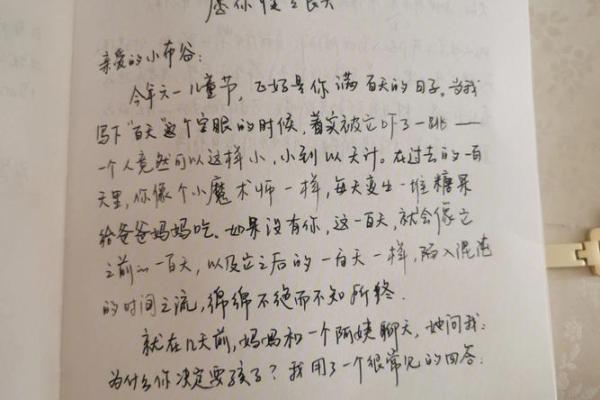 愿你慢慢长大
亲爱的小布谷:
今年六一儿童节，正好是你满百天的日子。当我
写下"百天"这个字眼的时候，着实被它吓了一跳——
一个人竟然可以这样小，小到以天计。在过去的一百
天里，你像个小魔术师一样，每天变出一堆糖果
给爸爸妈妈吃。如果没有你，这一百天，就会像它
之前的一百天，以及它之后的一百天一样，陷入混沌
的时间之流，绵绵不绝而不知所终.
就在几天前，妈妈和一个阿姨聊天，她问我:
为什么你决定要孩子？我用了一个很常见的回答: